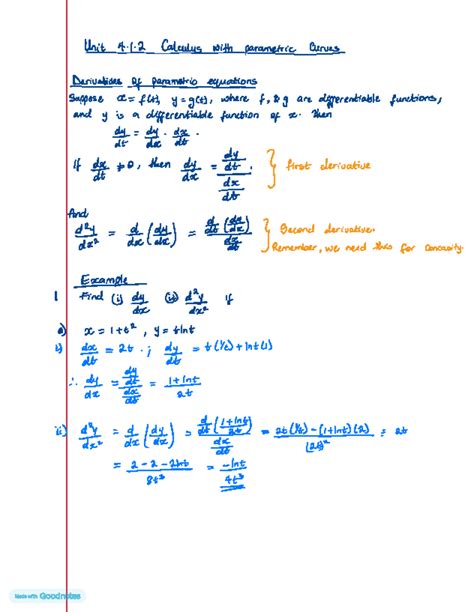 Unit 4.1.2 Calculus with parametric Curves
Derivatives of parametric equations
Suppose x = f(t), y = g(t), where f, & g are differentiable functions,
and y is a differentiable function of x. Then
dy/dt = dy/dx · dx/dt.
If dx/dt ≠ 0, then dy/dx = (dy/dt)/(dx/dt). } first derivative
And
d²y/dx² = d/dx (dy/dx) = (d/dt (dy/dx))/(dx/dt) } Second derivative.
Remember, we need this for concavity.
Example
1 Find (i) dy/dx (ii) d²y/dx² if
a) x = 1+t², y = tlnt
i) dx/dt = 2t ; dy/dt = t(1/t) + lnt(1)
∴ dy/dx = (dy/dt)/(dx/dt) = (1+lnt)/2t
ii) d²y/dx² = d/dx (dy/dx) = (d/dt (1+lnt)/2t)/(dx/dt) = (2t(1/t) − (1+lnt)(2))/(2t)² ÷ 2t
= (2 − 2 − 2lnt)/8t³ = −lnt/4t³
Made with Goodnotes